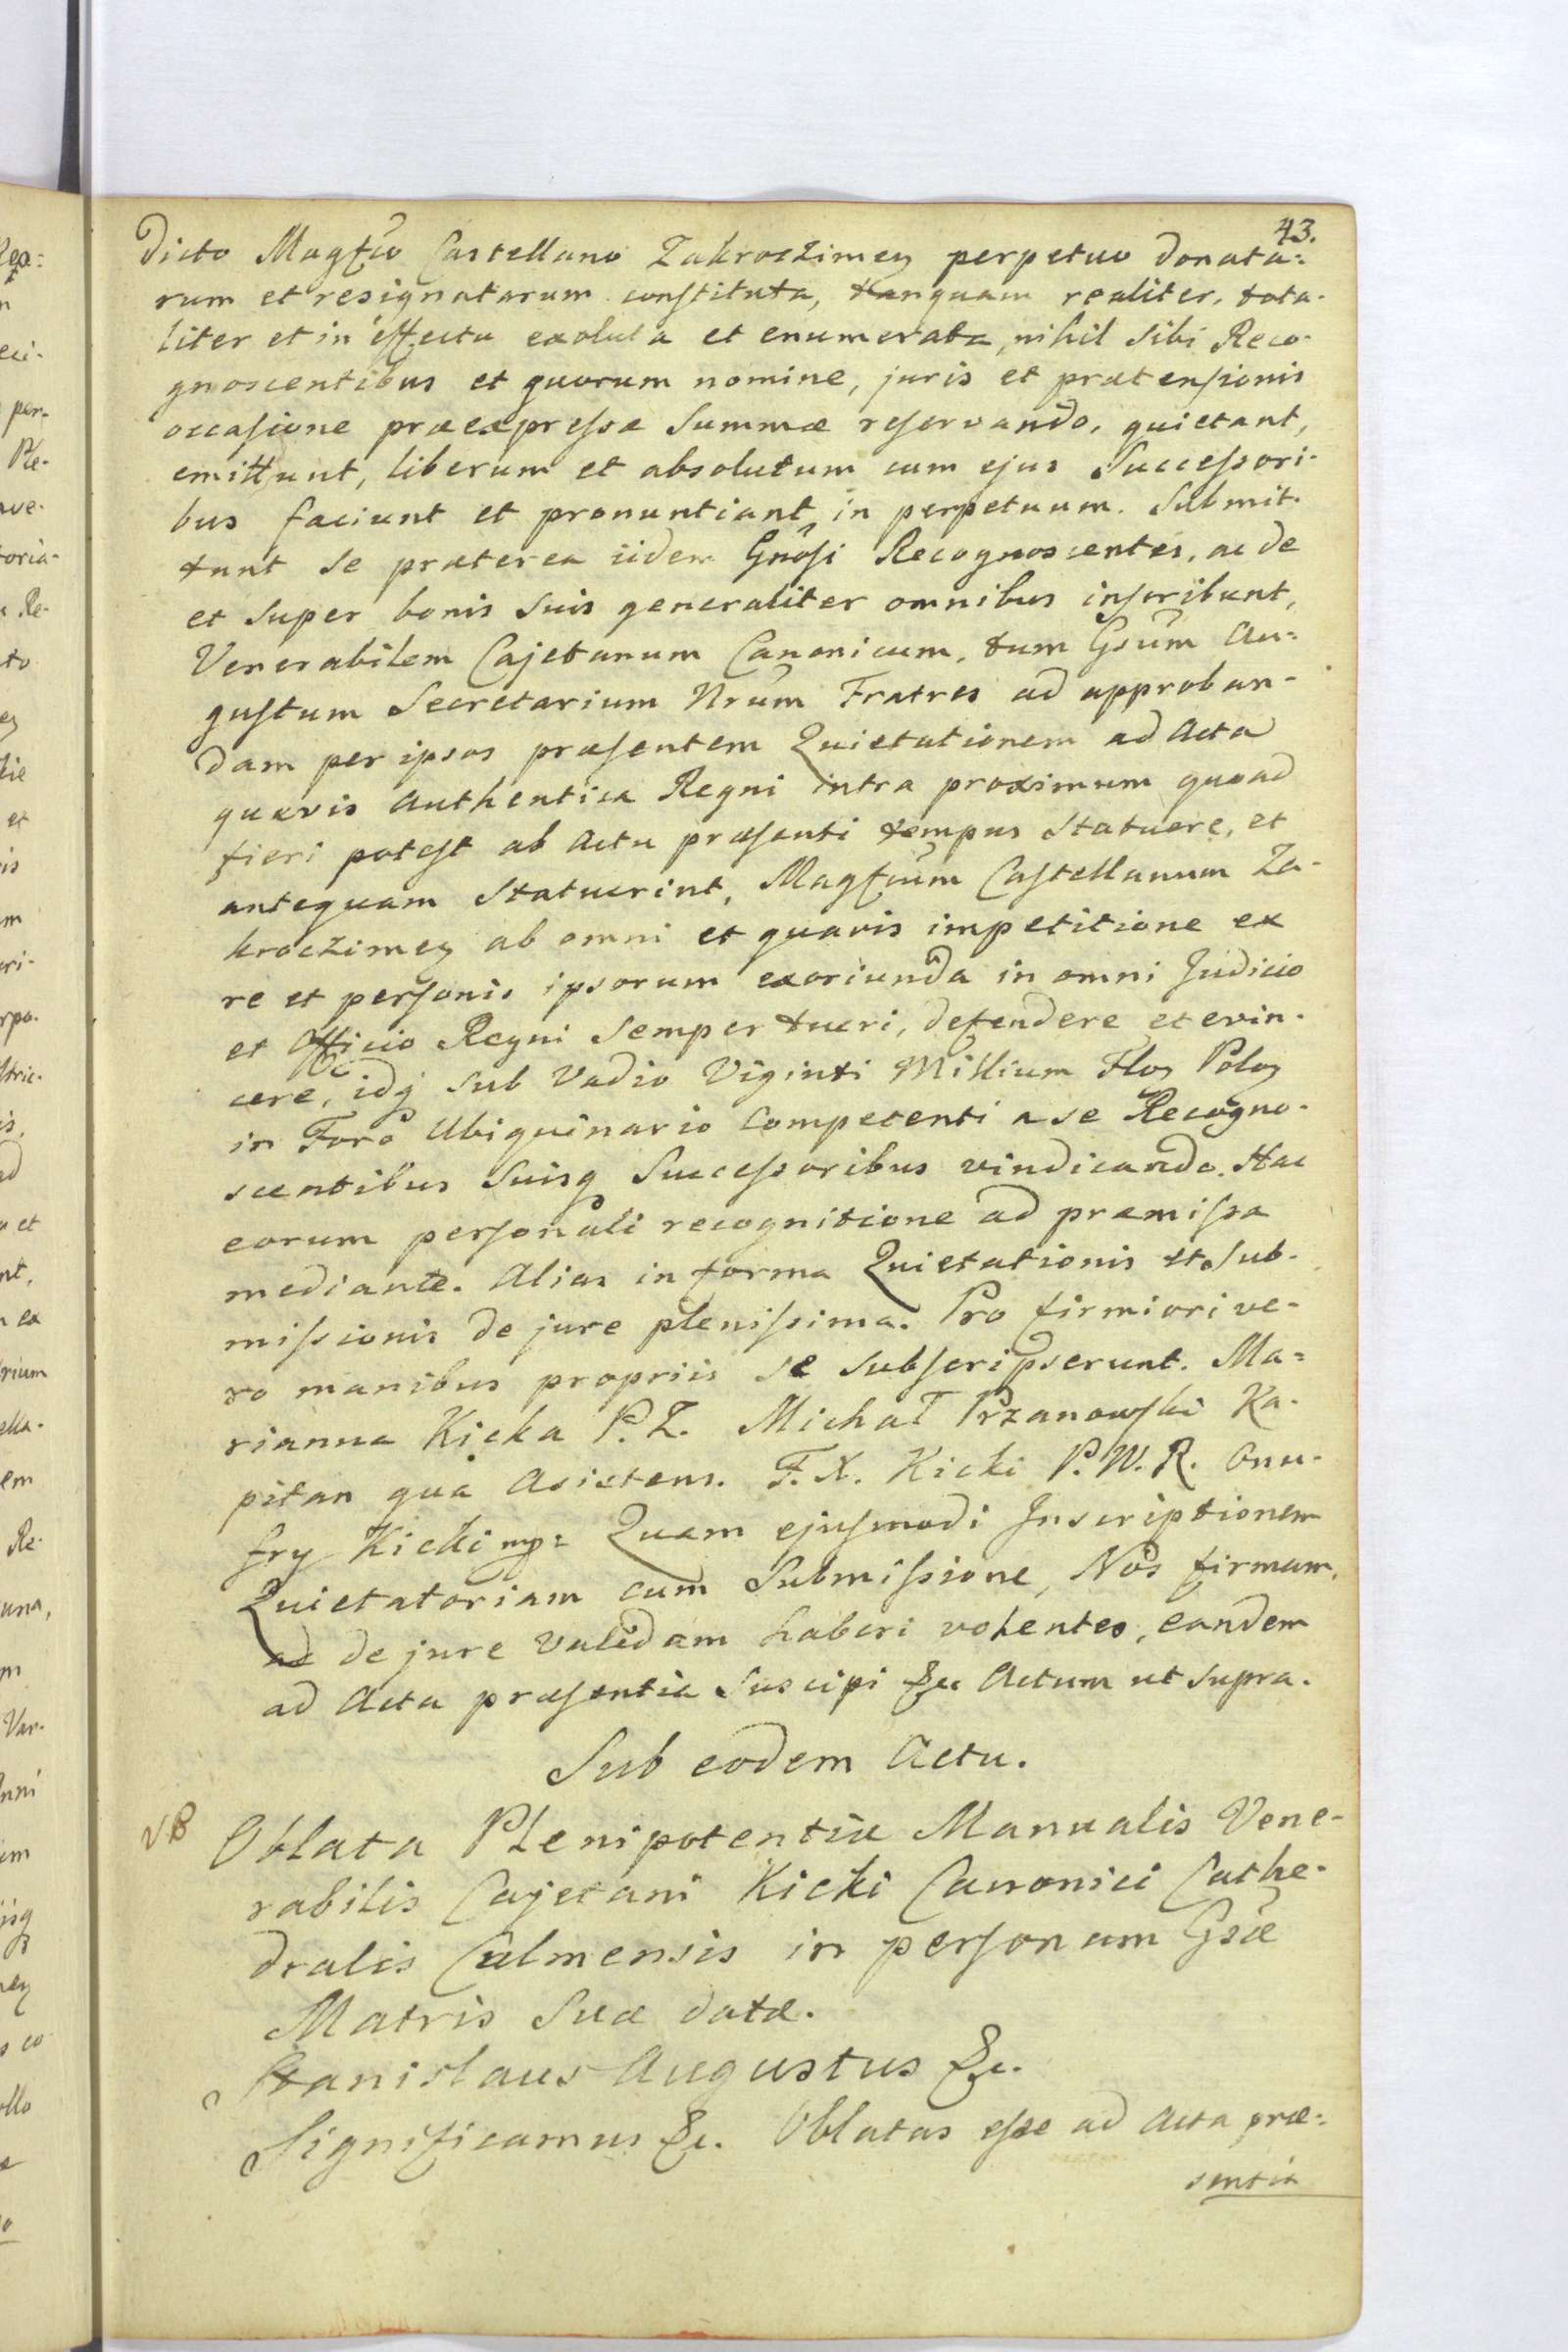 43.
dicto Magfco Castellano Zakroczimen perpetuo donata=
rum et resignatarum constituta, tanquam realiter, tota-
liter et in effectu exoluta et enumerata, nihil sibi Reco-
gnoscentibus et quorum nomine, juris et prætensionis
occasione præexpressæ Summæ reservando, quietant,
emittunt, liberum et absolutum cum ejus Successori-
bus faciunt et pronuntiant in perpetuum. Submit-
tunt se præterea iidem Gnosi Recognoscentes, ac de
et super bonis suis generaliter omnibus inscribunt,
Venerabilem Cajetanum Canonicum, tum Gsum Au=
gustum Secretarium Nrum Fratres ad approban-
dam per ipsos præsentem Quietationem ad Acta
quævis Authentica Regni intra proximum quoad
fieri potest ab Actu præsenti tempus Statuere, et
antequam Statuerint, Magfcum Castellanum Za-
kroczimen ab omni et quavis impetitione ex
re et personis ipsorum exoriunda in omni Judicio
et Officio Regni Semper tueri, defendere et evin-
cere, idq sub Vadio Viginti Millium Flor Polon
in Foro Ubiquinario Competenti a se Recogno-
scentibus Suisq Successoribus vindicando. Hac
eorum personali recognitione ad præmissa
mediante. Alias in forma Quietationis et Sub-
missionis de jure plenissima. Pro firmiori ve-
ro manibus propriis se subscripserunt. Ma=
rianna Kicka P. Z. Michał Przanowski Ka-
pitan qua Asistens. F. X. Kicki P. W. R. Onu-
fry Kicki mp= Quam ejusmodi Inscriptionem
Quietatoriam cum Submissione, Nos firmam,
ac de jure validam haberi volentes, eandem
ad Acta præsentia Suscipi &c Actum ut supra.
Sub eodem Actu.
NB Oblata Plenipotentiæ Manualis Vene-
rabilis Cajetani Kicki Canonici Cathe-
dralis Culmensis in personam Gsæ
Matris Suæ datæ.
Stanislaus Augustus &c.
Significamus &c. Oblatas esse ad Acta præ=
sentia